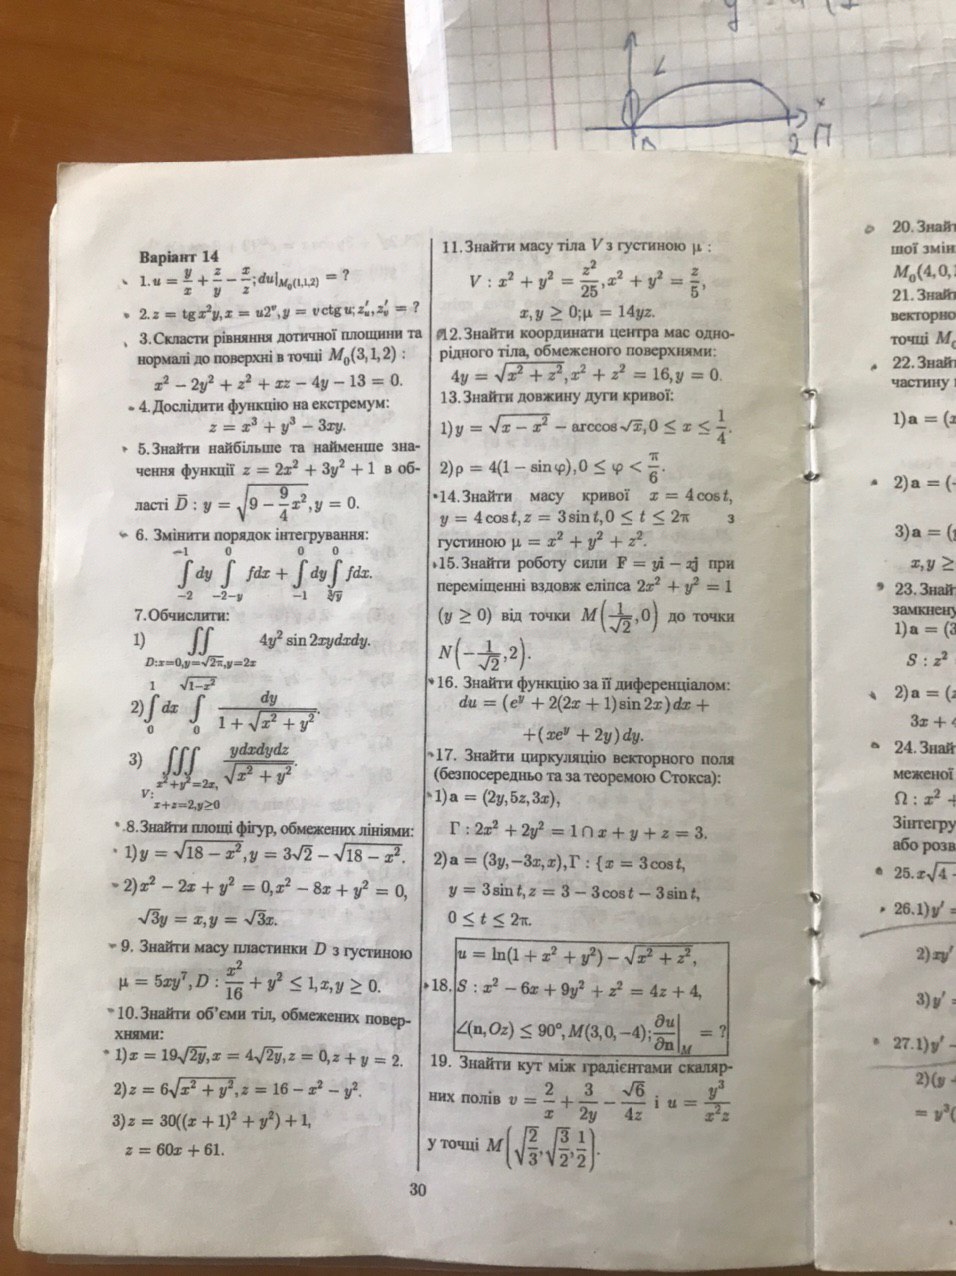 Варіант 14
1. u = y/x + z/y − x/z; du|_{M₀(1,1,2)} = ?
2. z = tg x²y, x = u2^v, y = v ctg u; z'_u, z'_v = ?
3. Скласти рівняння дотичної площини та
нормалі до поверхні в точці M₀(3,1,2) :
x² − 2y² + z² + xz − 4y − 13 = 0.
4. Дослідити функцію на екстремум:
z = x³ + y³ − 3xy.
5. Знайти найбільше та найменше зна-
чення функції z = 2x² + 3y² + 1 в об-
ласті D̄ : y = √(9 − 9/4 x²), y = 0.
6. Змінити порядок інтегрування:
∫_{−2}^{−1} dy ∫_{−2−y}^{0} fdx + ∫_{−1}^{0} dy ∫_{∛y}^{0} fdx.
7. Обчислити:
1) ∬_{D: x=0, y=√2π, y=2x} 4y² sin 2xydxdy.
2) ∫_{0}^{1} dx ∫_{0}^{√(1−x²)} dy/(1 + √(x² + y²)).
3) ∭_{V: x²+y²=2x, x+z=2, y≥0} ydxdydz/√(x² + y²).
8. Знайти площі фігур, обмежених лініями:
1) y = √(18 − x²), y = 3√2 − √(18 − x²).
2) x² − 2x + y² = 0, x² − 8x + y² = 0,
√3y = x, y = √3x.
9. Знайти масу пластинки D з густиною
μ = 5xy⁷, D : x²/16 + y² ≤ 1, x, y ≥ 0.
10. Знайти об'єми тіл, обмежених повер-
хнями:
1) x = 19√2y, x = 4√2y, z = 0, z + y = 2.
2) z = 6√(x² + y²), z = 16 − x² − y².
3) z = 30((x + 1)² + y²) + 1,
z = 60x + 61.
11. Знайти масу тіла V з густиною μ :
V : x² + y² = z²/25, x² + y² = z/5,
x, y ≥ 0; μ = 14yz.
12. Знайти координати центра мас одно-
рідного тіла, обмеженого поверхнями:
4y = √(x² + z²), x² + z² = 16, y = 0.
13. Знайти довжину дуги кривої:
1) y = √(x − x²) − arccos √x, 0 ≤ x ≤ 1/4.
2) ρ = 4(1 − sin φ), 0 ≤ φ < π/6.
14. Знайти масу кривої x = 4 cos t,
y = 4 cos t, z = 3 sin t, 0 ≤ t ≤ 2π з
густиною μ = x² + y² + z².
15. Знайти роботу сили F = yi − xj при
переміщенні вздовж еліпса 2x² + y² = 1
(y ≥ 0) від точки M(1/√2, 0) до точки
N(−1/√2, 2).
16. Знайти функцію за її диференціалом:
du = (e^y + 2(2x + 1) sin 2x) dx +
+(xe^y + 2y) dy.
17. Знайти циркуляцію векторного поля
(безпосередньо та за теоремою Стокса):
1) a = (2y, 5z, 3x),
Γ : 2x² + 2y² = 1 ∩ x + y + z = 3.
2) a = (3y, −3x, x), Γ : {x = 3 cos t,
y = 3 sin t, z = 3 − 3 cos t − 3 sin t,
0 ≤ t ≤ 2π.
u = ln(1 + x² + y²) − √(x² + z²),
18. S : x² − 6x + 9y² + z² = 4z + 4,
∠(n, Oz) ≤ 90°, M(3, 0, −4); ∂u/∂n|_M = ?
19. Знайти кут між градієнтами скаляр-
них полів v = 2/x + 3/2y − √6/4z і u = y³/x²z
у точці M(√(2/3), √(3/2), 1/2).
30
20. Знайт
шої змін
M₀(4, 0,
21. Знайт
векторно
точці M
22. Знайт
частину
1) a = (
2) a = (−
3) a = (
x, y ≥
23. Знай
замкнену
1) a = (3
S : z²
2) a = (
3x +
24. Знай
меженої
Ω : x² +
Зінтегру
або розв
25. x√4 −
26. 1) y' =
2) xy'
3) y' =
27. 1) y' −
2) (y +
= y³(
L
x
2π